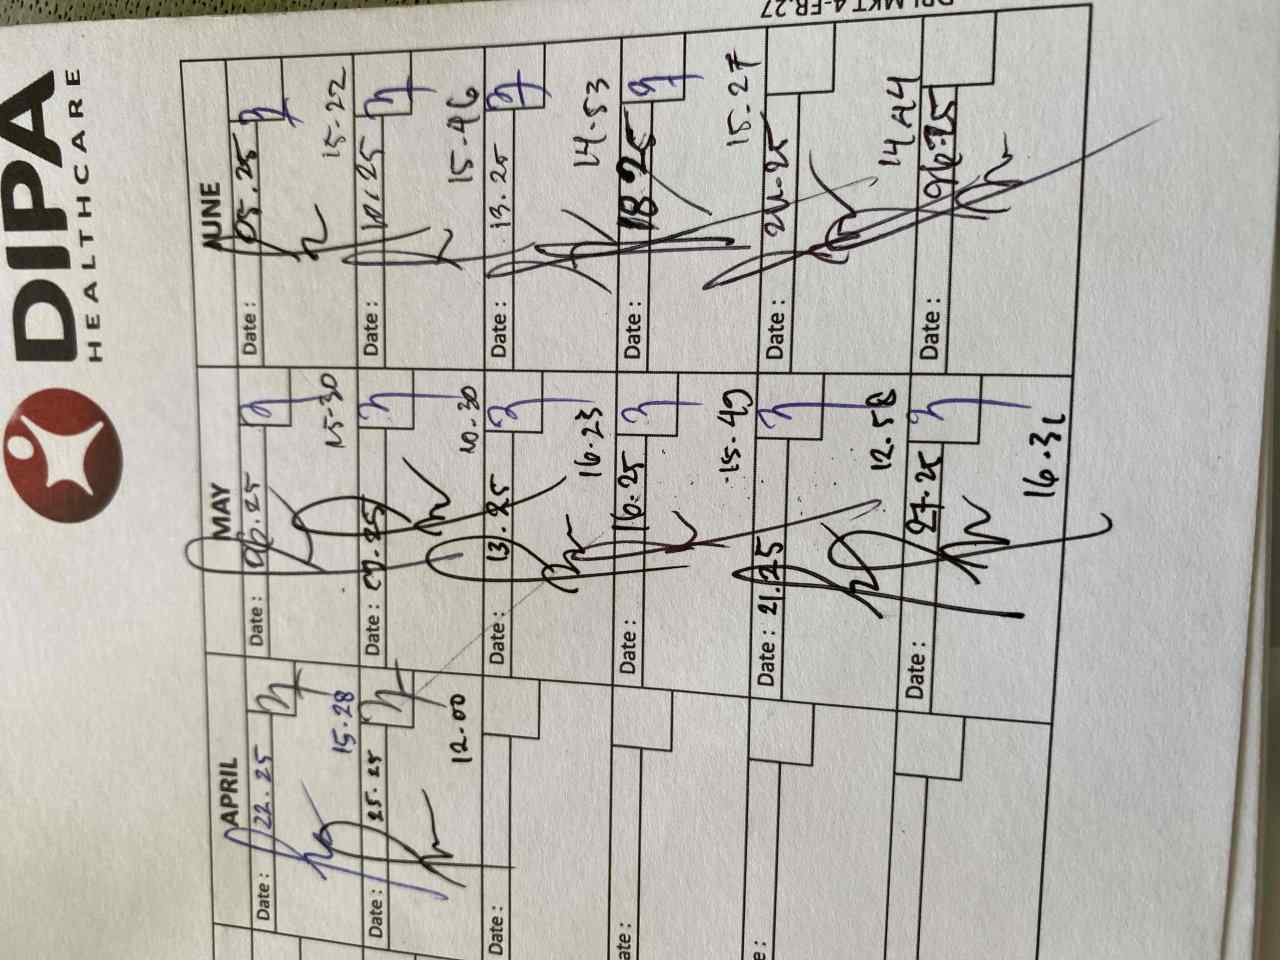 DIPA
HEALTHCARE
APRIL
Date : 22.25
15.28
Date : 25.25
12.00
Date :
ate :
e :
MAY
Date : 06.25
15-30
Date :
10.30
Date : 13.25
16.23
Date : 16.25
15.49
Date : 21.25
12.58
Date : 27.25
16.31
JUNE
Date : 05.25
15-22
Date : 10.25
15-46
Date : 13.25
14.53
Date : 18.25
15.27
Date : 24.25
14.44
Date : 26.25